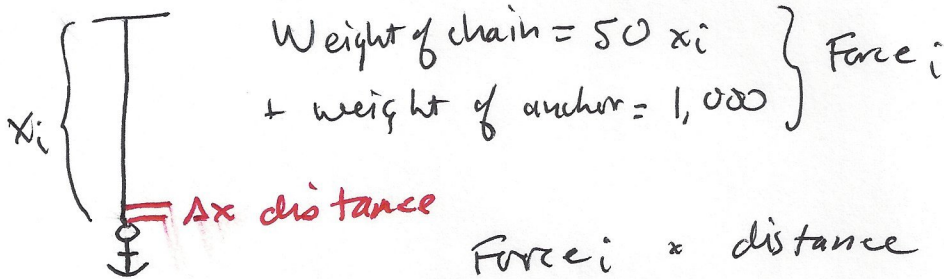 Weight of chain = 50 xi
+ weight of anchor = 1,000
Force i
xi
Δx distance
Force i × distance